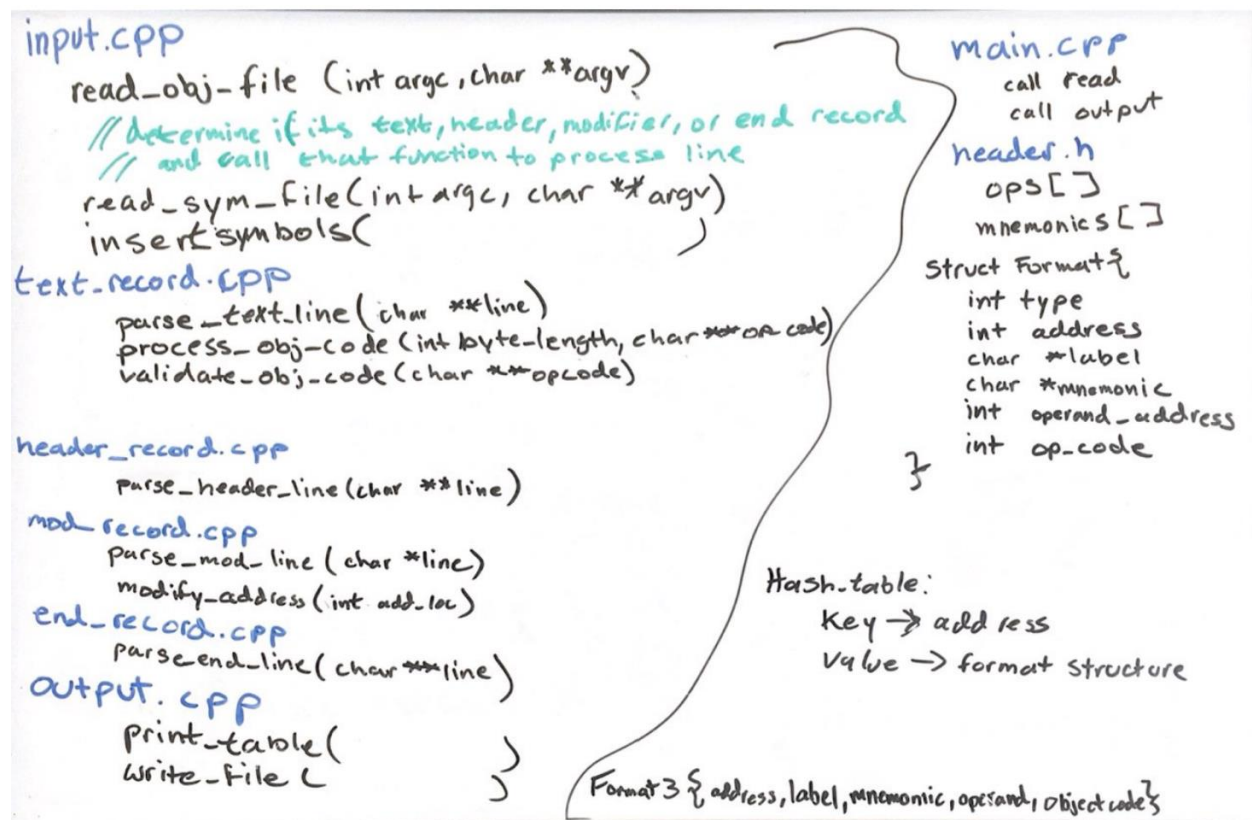 input.cpp
read_obj-file (int argc, char **argv)
// determine if its text, header, modifier, or end record
// and call that function to process line
read_sym_file(int argc, char **argv)
insertsymbols( )
text_record.cpp
parse_text_line(char **line)
process_obj-code (int byte-length, char **op code)
validate_obj_code(char **opcode)
header_record.cpp
parse_header_line(char **line)
mod_record.cpp
parse_mod_line (char *line)
modify_address(int add_loc)
end_record.cpp
parse_end_line(char **line)
output.cpp
print_table( )
write_file( )
main.cpp
call read
call output
header.h
ops[]
mnemonics[]
Struct Format{
int type
int address
char *label
char *mnemonic
int operand_address
int op_code
}
Hash_table:
Key → address
Value → format structure
Format 3 { address, label, mnemonic, operand, object code}